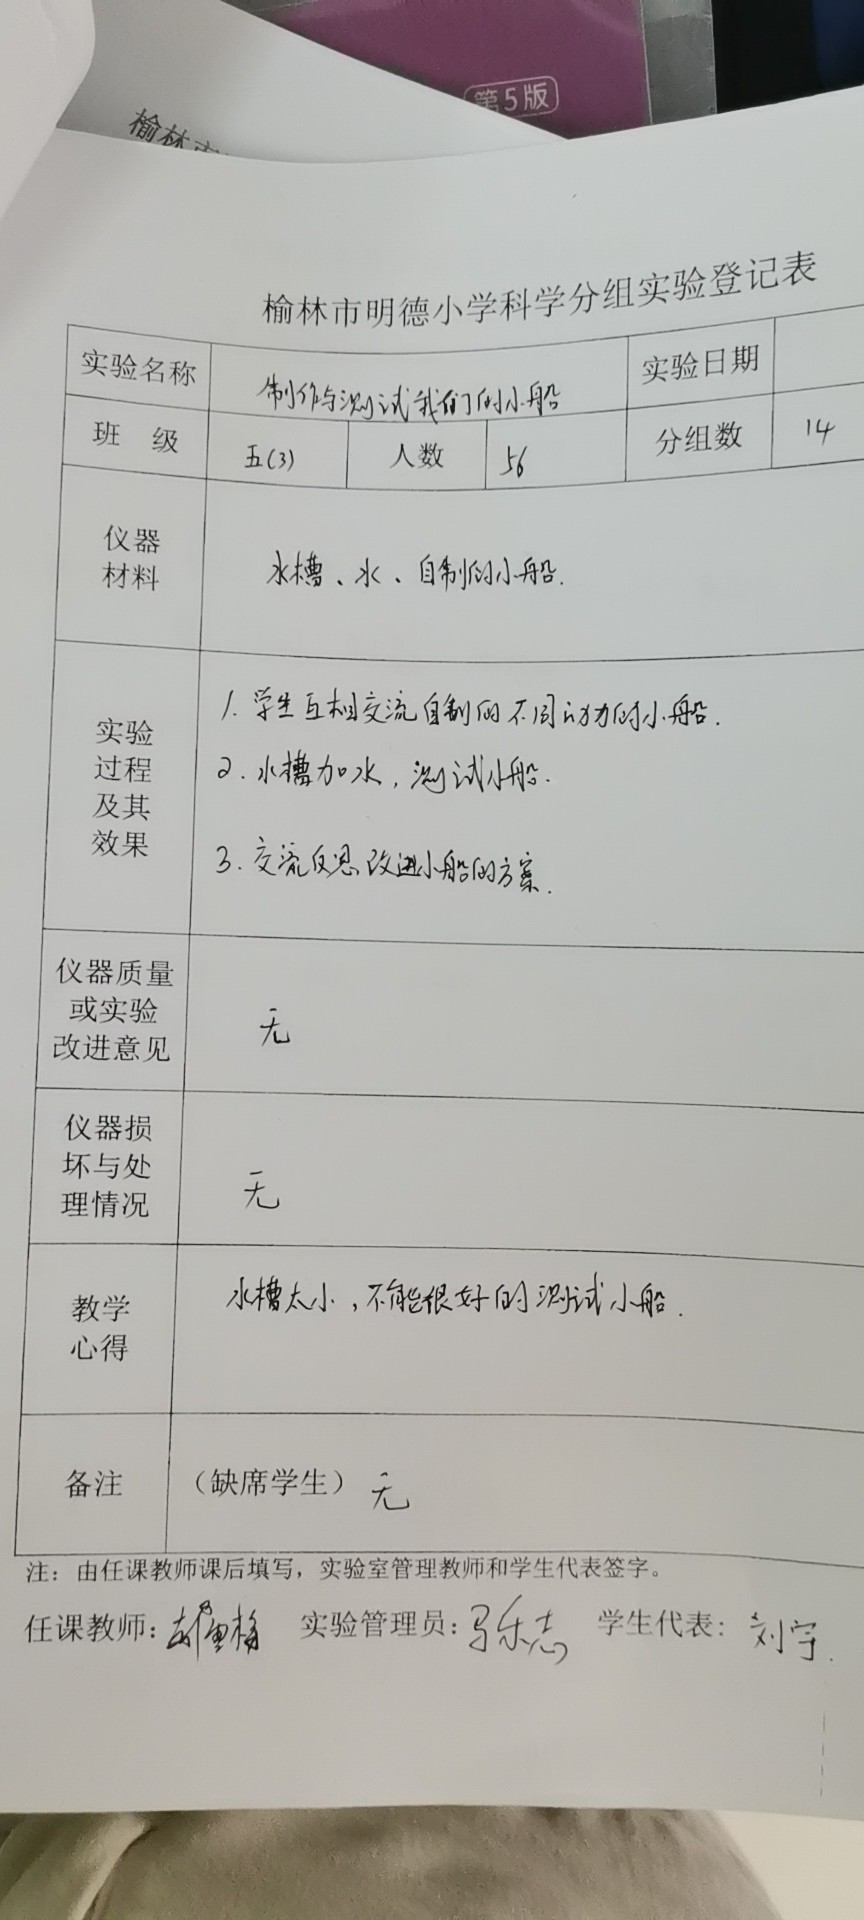 第5版
榆林市
榆林市明德小学科学分组实验登记表
实验名称 制作与测试我们的小船 实验日期
班 级 五(3) 人数 56 分组数 14
仪器
材料
水槽、水、自制的小船.
实验
过程
及其
效果
1. 学生互相交流自制的不同动力的小船.
2. 水槽加水，测试小船.
3. 交流反思改进小船的方案.
仪器质量
或实验
改进意见
无
仪器损
坏与处
理情况
无
教学
心得
水槽太小，不能很好的测试小船.
备注 （缺席学生） 无
注：由任课教师课后填写，实验室管理教师和学生代表签字。
任课教师: 实验管理员: 马乐志 学生代表: 刘宇.